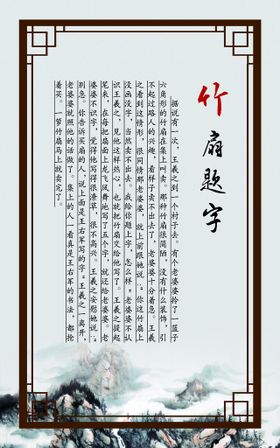 竹扇题字
据说有一次，王羲之到一个村子去。有个老婆婆拎了一篮子
六角形的竹扇在集上叫卖。那种竹扇很简陋，没有什么装饰，引
不起过路人的兴趣，看样子卖不出去了，老婆婆十分着急。王羲
之看到这情形，很同情那老婆婆，就上前跟她说：你这竹扇上
没画没字，当然卖不出去。我给你题上字，怎么样。老婆婆不认
识王羲之，见他这样热心，也就把竹扇交给他写了。王羲之提起
笔来，在每把扇面上龙飞凤舞地写了五个字，就还给老婆婆。老
婆婆不识字，觉得他写得很潦草，很不高兴。王羲之安慰她说：
别急。你告诉买扇的人，说上面是王右军写的字。王羲之一离开，
老婆婆就照他的话做了。集上的人一看真是王右军的书法，都抢
着买。一箩竹扇马上就卖完了。